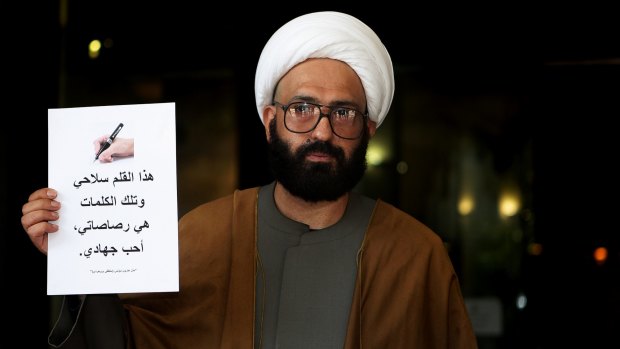 هذا القلم سلاحي
وتلك الكلمات
هي رصاصاتي،
أحب جهادي.